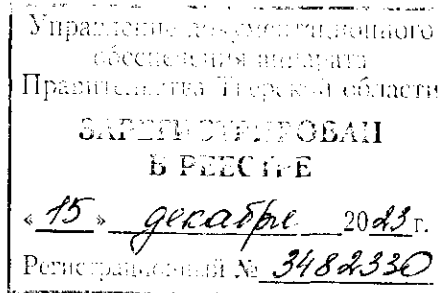 Управление документационного
обеспечения аппарата
Правительства Тверской области
ЗАРЕГИСТРИРОВАН
В РЕЕСТРЕ
« 15 » декабря 2023 г.
Регистрационный № 3482330